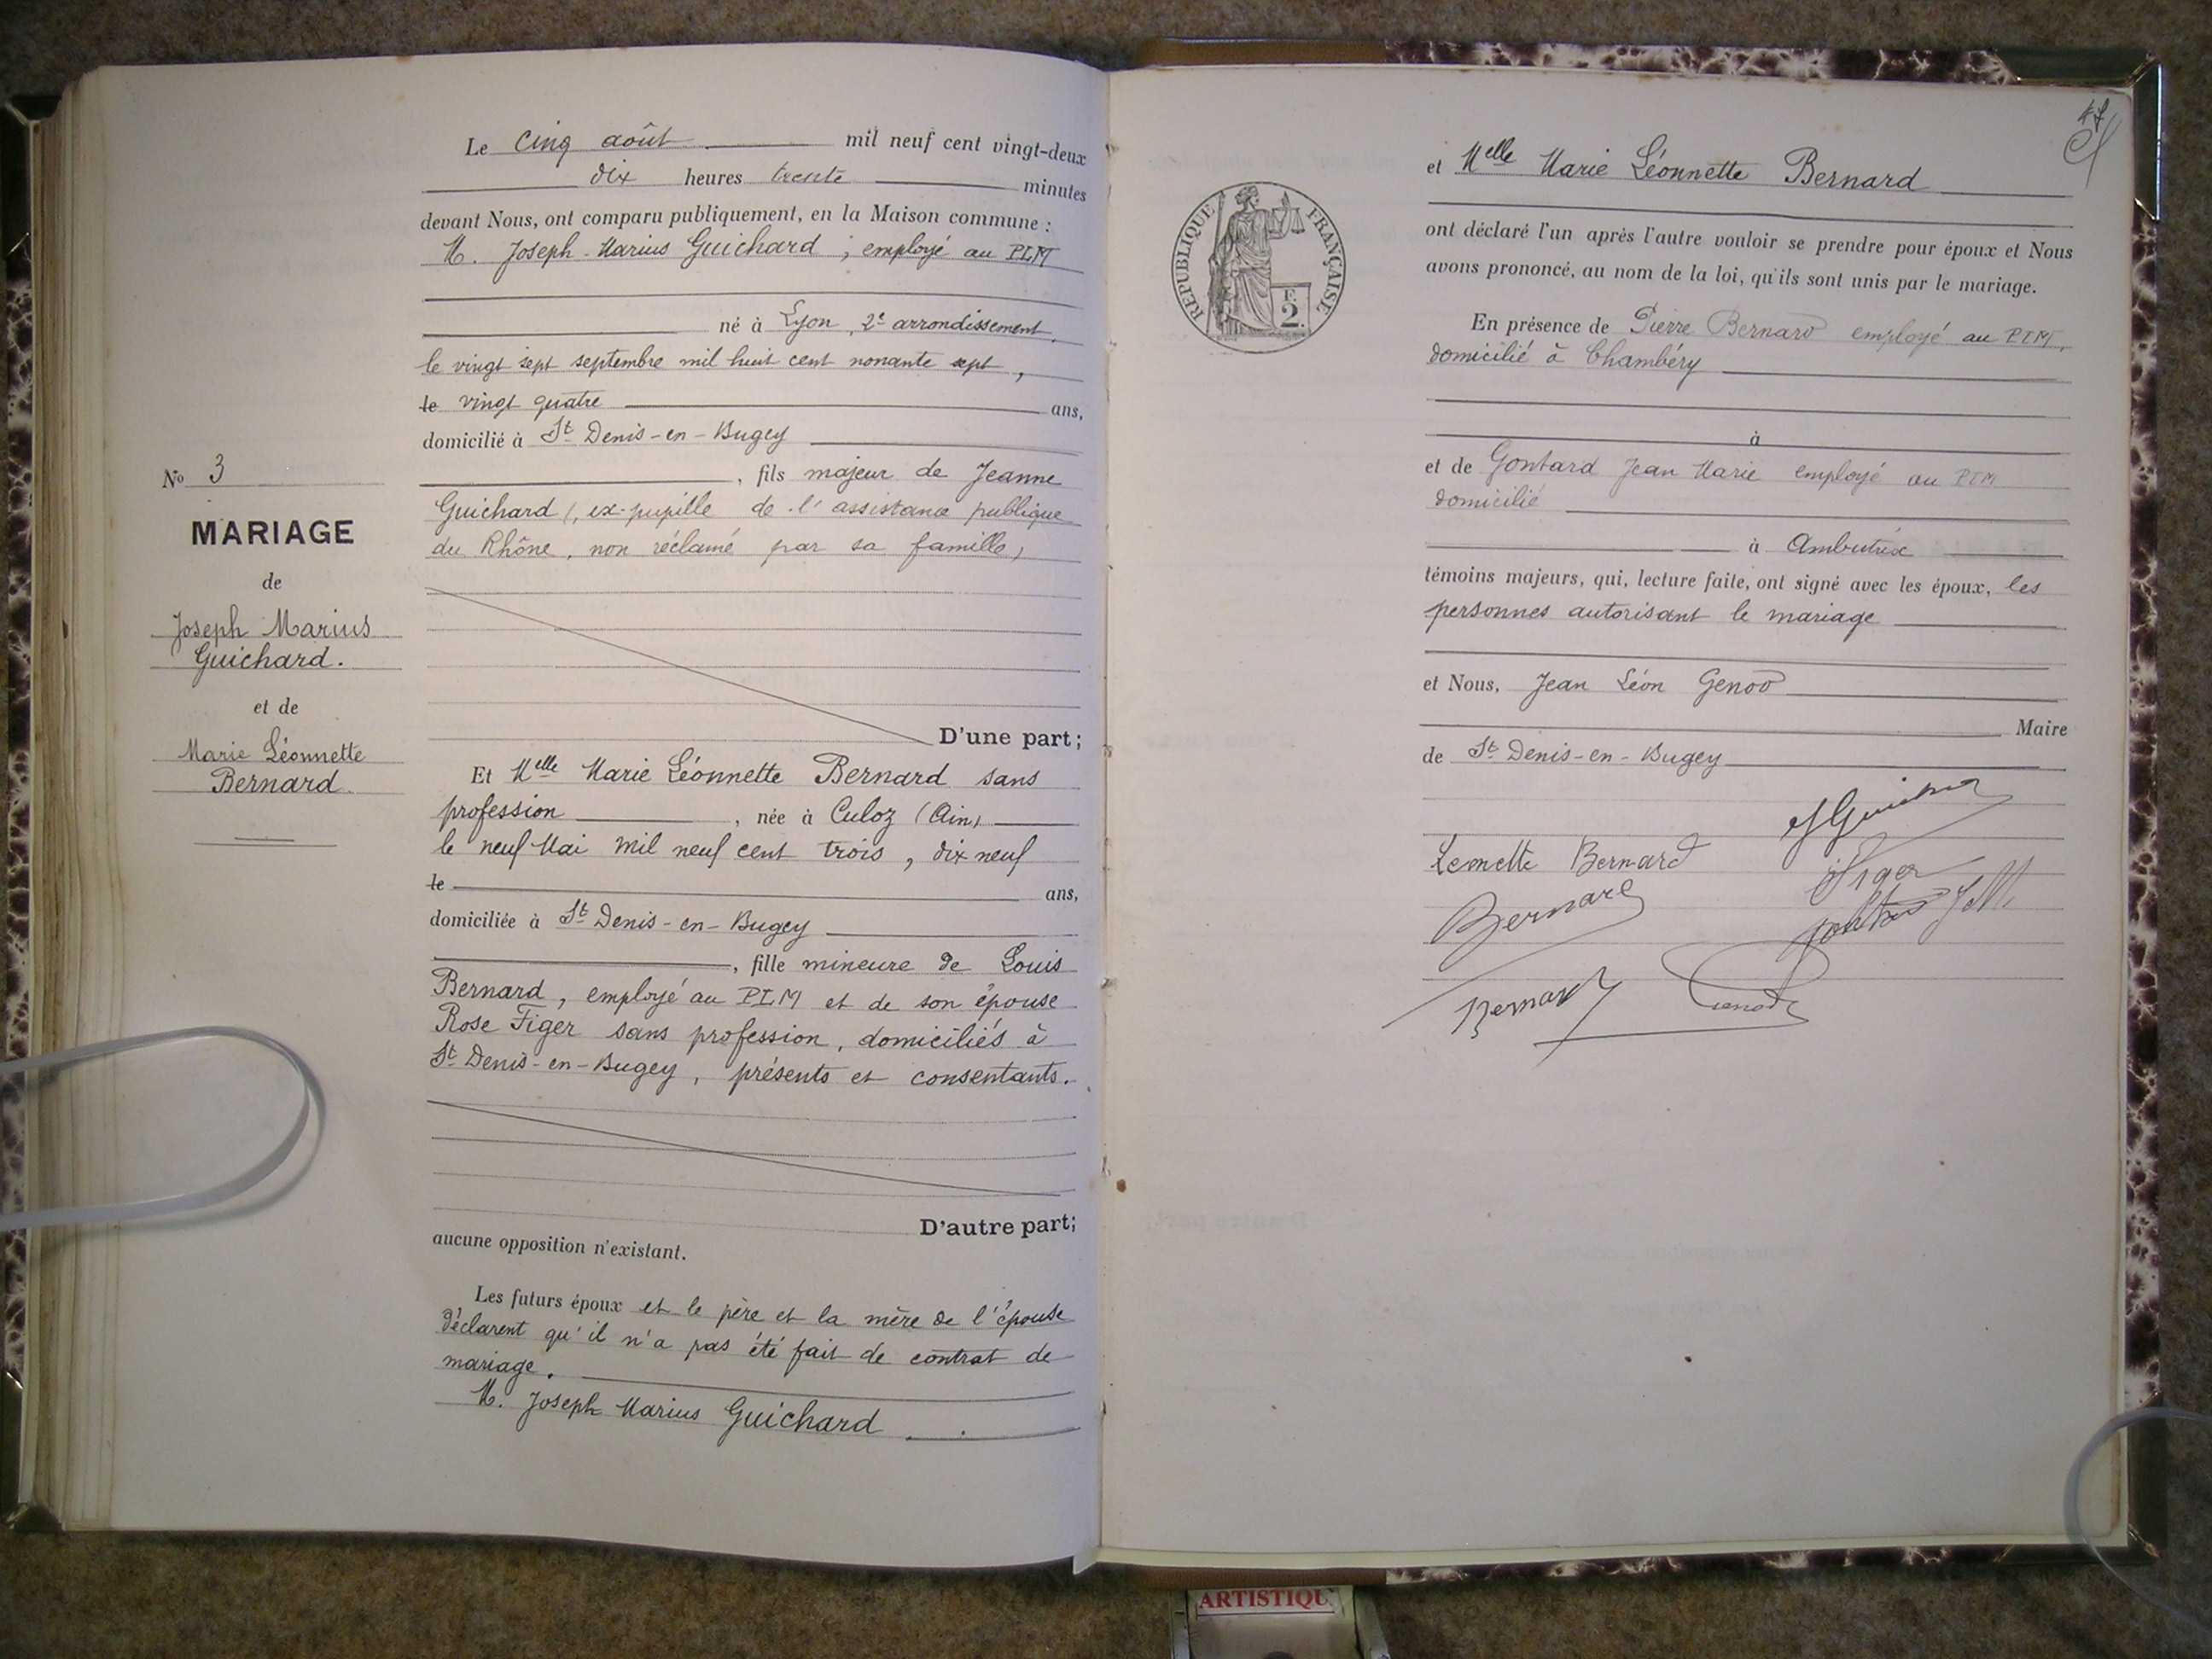 Le cinq août mil neuf cent vingt-deux
dix heures trente minutes
devant Nous, ont comparu publiquement, en la Maison commune :
M. Joseph Marius Guichard ; employé au PLM
né à Lyon, 2e arrondissement,
le vingt sept septembre mil huit cent nonante sept,
le vingt quatre ans,
domicilié à St Denis-en-Bugey
, fils majeur de Jeanne
Guichard (, ex-pupille de l'assistance publique
du Rhône, non réclamé par sa famille)
D'une part;
No 3
MARIAGE
de
Joseph Marius
Guichard.
et de
Marie Léonnette
Bernard
Et Melle Marie Léonnette Bernard sans
profession, née à Culoz (Ain)
le neuf Mai mil neuf cent trois, dix neuf
le ans,
domiciliée à St Denis-en-Bugey
, fille mineure de Louis
Bernard, employé au PLM et de son épouse
Rose Figer sans profession, domiciliés à
St Denis-en-Bugey, présents et consentants.
D'autre part;
aucune opposition n'existant.
Les futurs époux et le père et la mère de l'épouse
déclarent qu'il n'a pas été fait de contrat de
mariage.
M. Joseph Marius Guichard
47
RÉPUBLIQUE FRANÇAISE
F.
2.
et Melle Marie Léonnette Bernard
ont déclaré l'un après l'autre vouloir se prendre pour époux et Nous
avons prononcé, au nom de la loi, qu'ils sont unis par le mariage.
En présence de Pierre Bernard employé au PLM,
domicilié à Chambéry
à
et de Gontard Jean Marie employé au PLM
domicilié
à Ambutrix
témoins majeurs, qui, lecture faite, ont signé avec les époux, les
personnes autorisant le mariage
et Nous, Jean Léon Genod
Maire
de St Denis-en-Bugey
J Guichard
Leonette Bernard
Figer
Bernard
Gontard J M
Bernard
Genod
ARTISTIQU